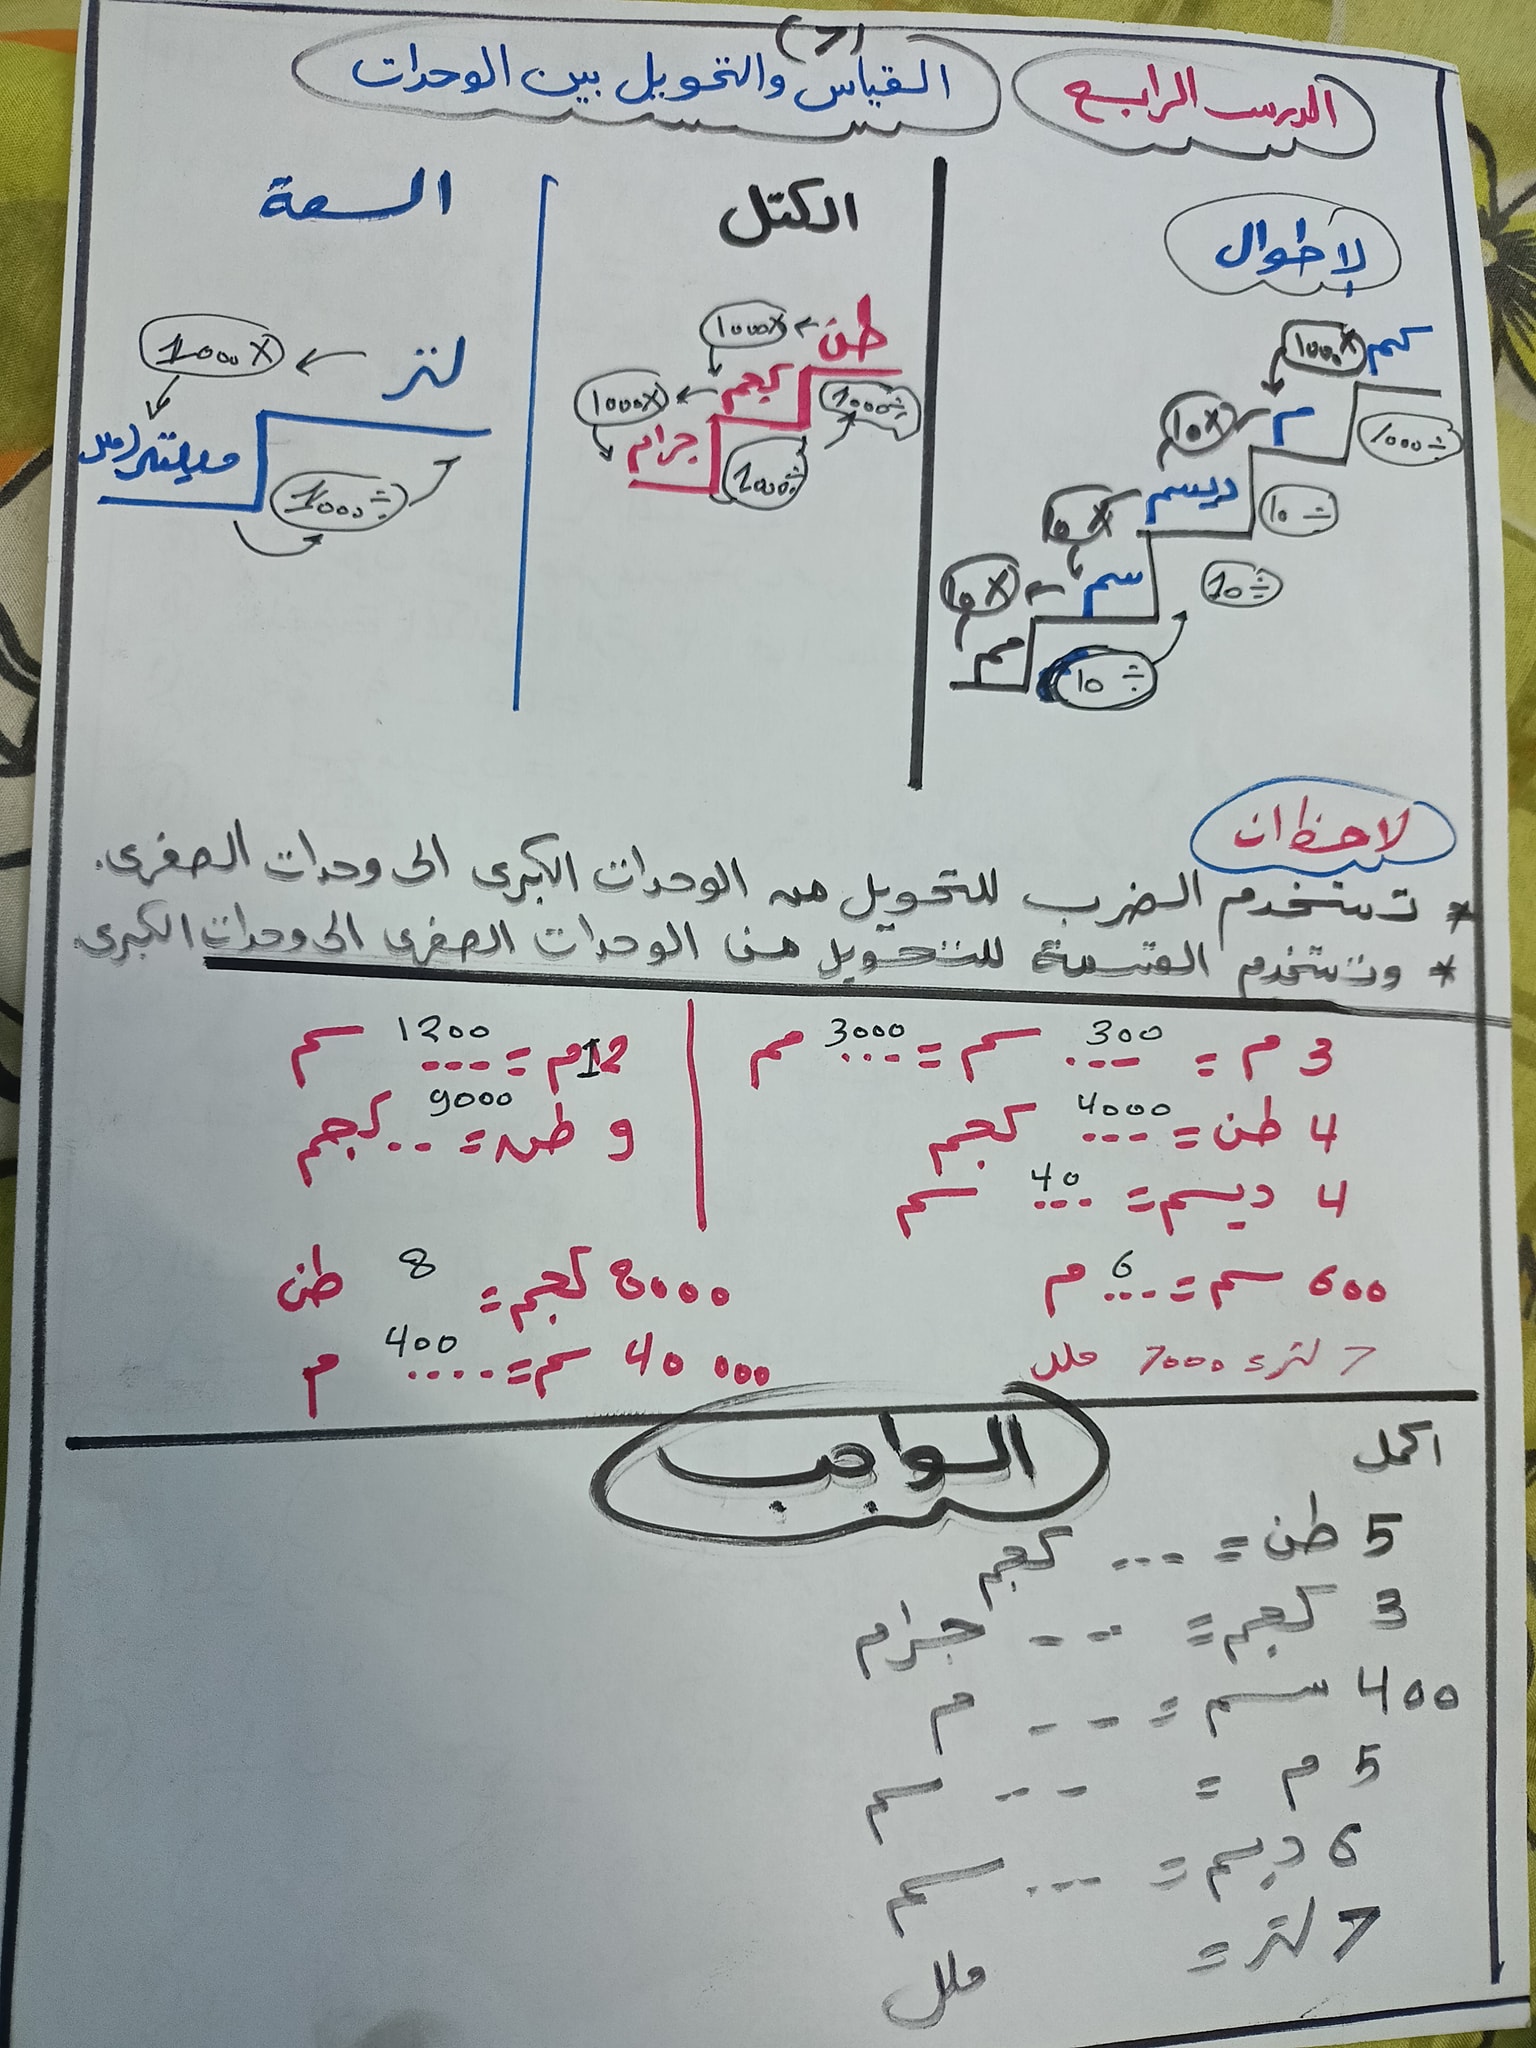 (7)
الدرس الرابع
القياس والتحويل بين الوحدات
لاطوال
الكتل
السعة
كم
1000×
م
1000÷
10×
ديسم
10÷
10×
سم
10÷
10×
مم
10÷
طن
1000×
كجم
1000÷
1000×
جرام
1000÷
لتر
1000×
ميليتر (ملل
1000÷
لاحظ ان
* تستخدم الضرب للتحويل من الوحدات الكبرى الى وحدات الصغرى.
* وتستخدم القسمة للتحويل من الوحدات الصغرى الى وحدات الكبرى.
3 م = 300 سم = 3000 مم
12 م = 1200 سم
4 طن = 4000 كجم
9 طن = 9000 كجم
4 ديسم = 40 سم
600 سم = 6 م
8000 كجم = 8 طن
7 لتر = 7000 ملل
40 000 سم = 400 م
الواجب
اكمل
5 طن = ... كجم
3 كجم = ... جرام
400 سم = ... م
5 م = ... سم
6 ديسم = ... سم
7 لتر = ملل